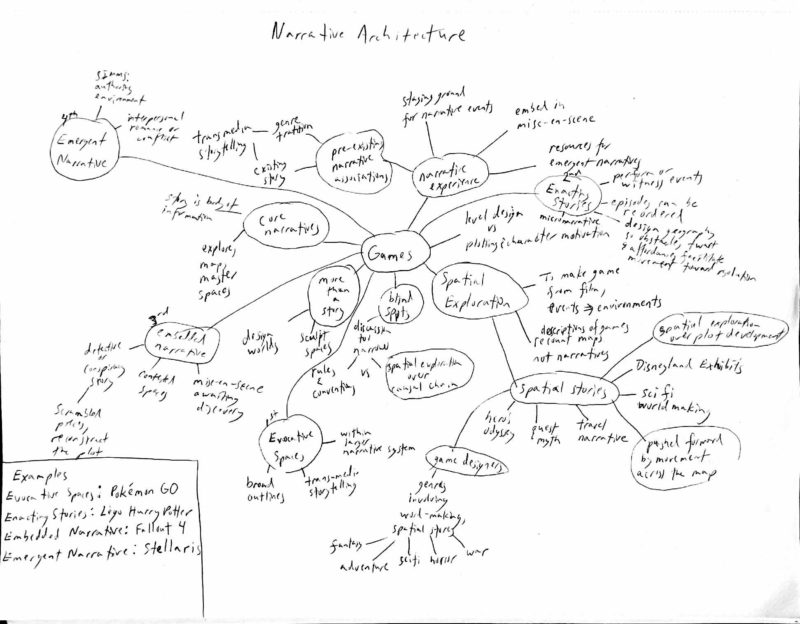 Narrative Architecture
SIMMS:
authoring
environment
4th
Emergent
Narrative
interpersonal
romance or
conflict
transmedia
storytelling
genre
tradition
existing
story
pre-existing
narrative
associations
staging ground
for narrative events
embed in
misc-en-scene
narrative
experience
resources for
emergent narratives
2nd
Enacting
Stories
perform or
witness events
micronarrative
episodes can be
reordered
design geography
so obstacles thwart
& affordances facilitate
movement toward resolution
Story is body of
information
Core
narratives
explore,
map,
master
spaces
Games
level design
vs
plotting & character motivation
more
than
a
story
design
worlds
sculpt
spaces
blind
spots
discussion
too
narrow
rules
&
conventions
vs
spatial exploration
over
causal chain
Spatial
Exploration
To make game
from film,
events → environments
descriptions of games
recount maps
not narratives
3rd
embedded
narrative
detective
or
conspiracy
story
contested
spaces
mise-en-scene
awaiting
discovery
Scrambled
pieces,
reconstruct
the plot
1st
Evocative
Spaces
within
larger
narrative system
broad
outlines
transmedia
storytelling
spatial stories
spatial exploration
over plot development
Disneyland Exhibits
Sci fi
world making
pushed forward
by movement
across the map
hero's
odyssey
quest
myth
travel
narrative
game designers
genres
involving
world-making,
spatial stories
fantasy
adventure
scifi
horror
war
Examples
Evocative Spaces: Pokémon GO
Enacting Stories: Lego Harry Potter
Embedded Narrative: Fallout 4
Emergent Narrative: Stellaris